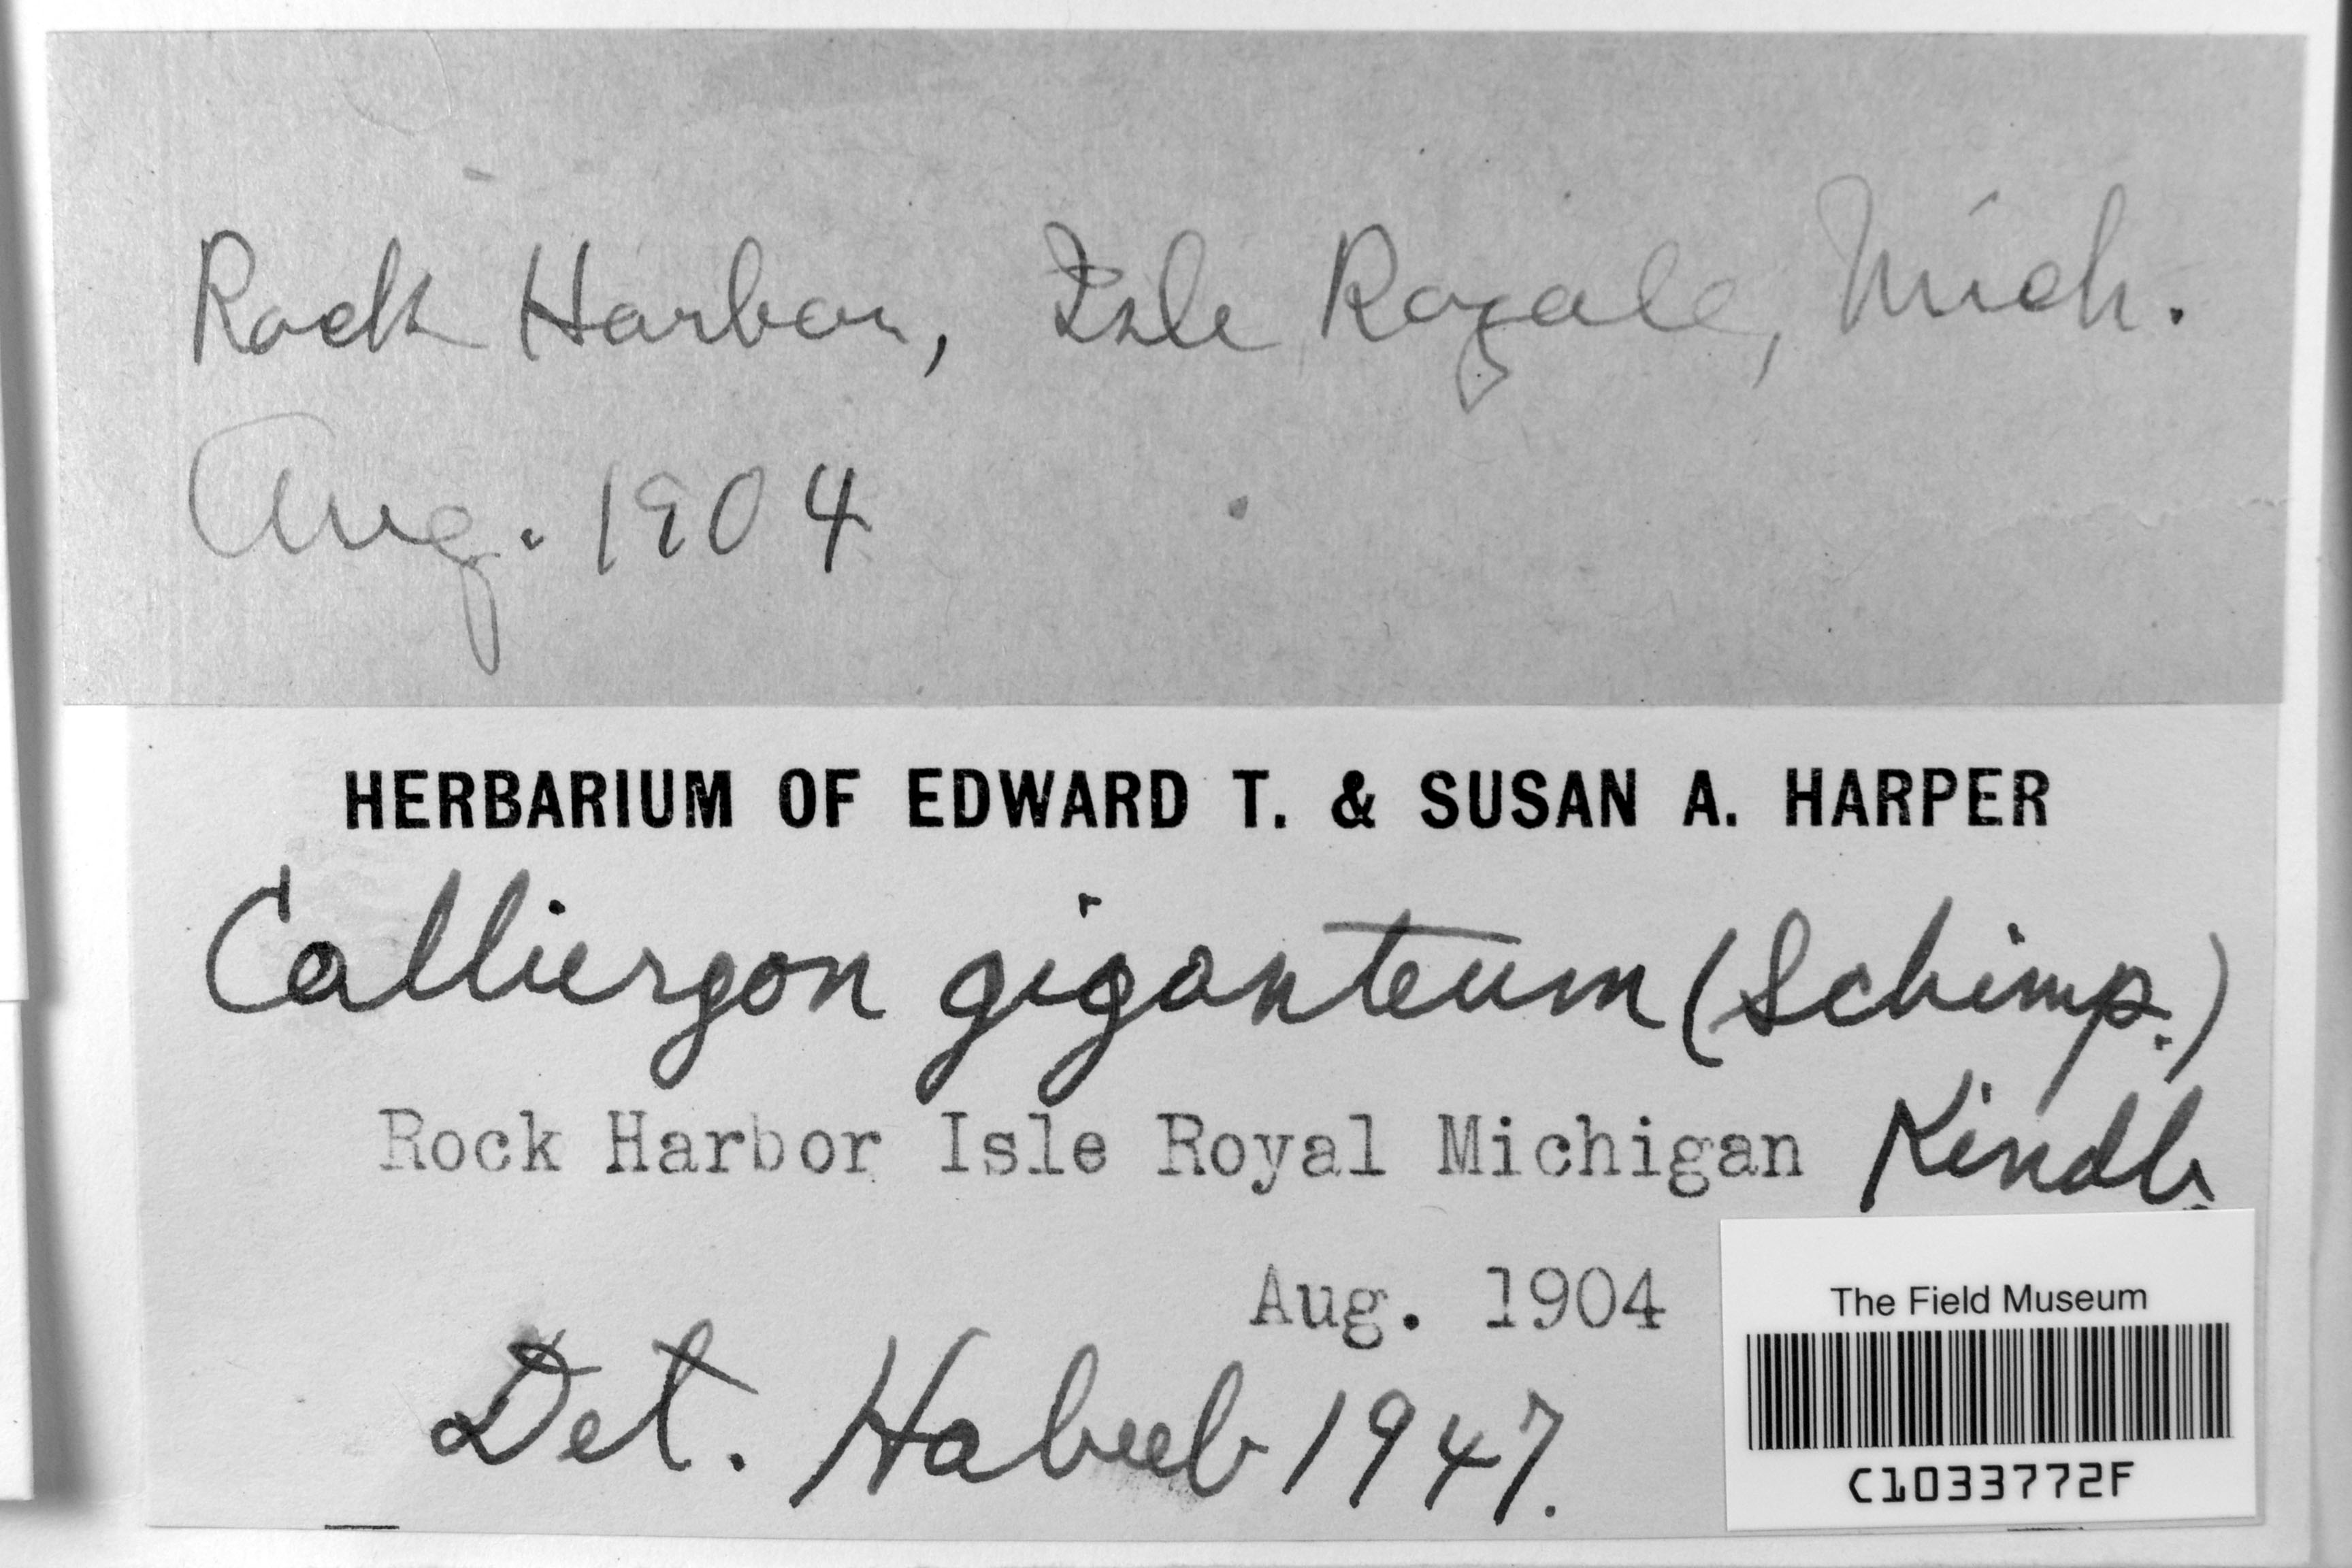 Rock Harbor, Isle Royale, Mich.
Aug. 1904
HERBARIUM OF EDWARD T. & SUSAN A. HARPER
Calliergon giganteum (Schimp.)
Rock Harbor Isle Royal Michigan Kindb.
Aug. 1904
Det. Habeeb 1947.
The Field Museum
C1033772F